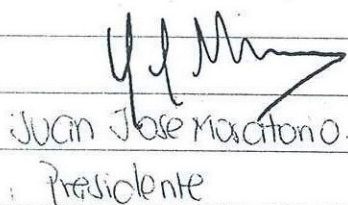 Juan Jose Moscatorio.
Presidente